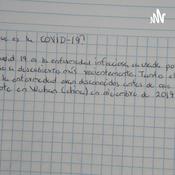 es la COVID-19?
19 es la enfermedad infecciosa causada por
descubierto más recientemente. Tanto el
la enfermedad eran desconocidos antes de que
en Wuhan (china) en diciembre de 2019